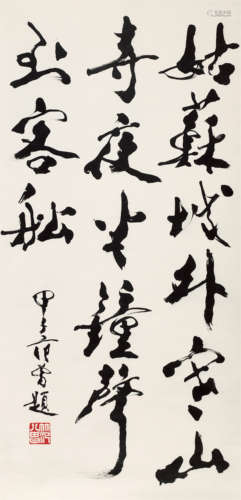 姑蘇城外寒山
寺夜半鐘聲
到客船
甲子范曾題